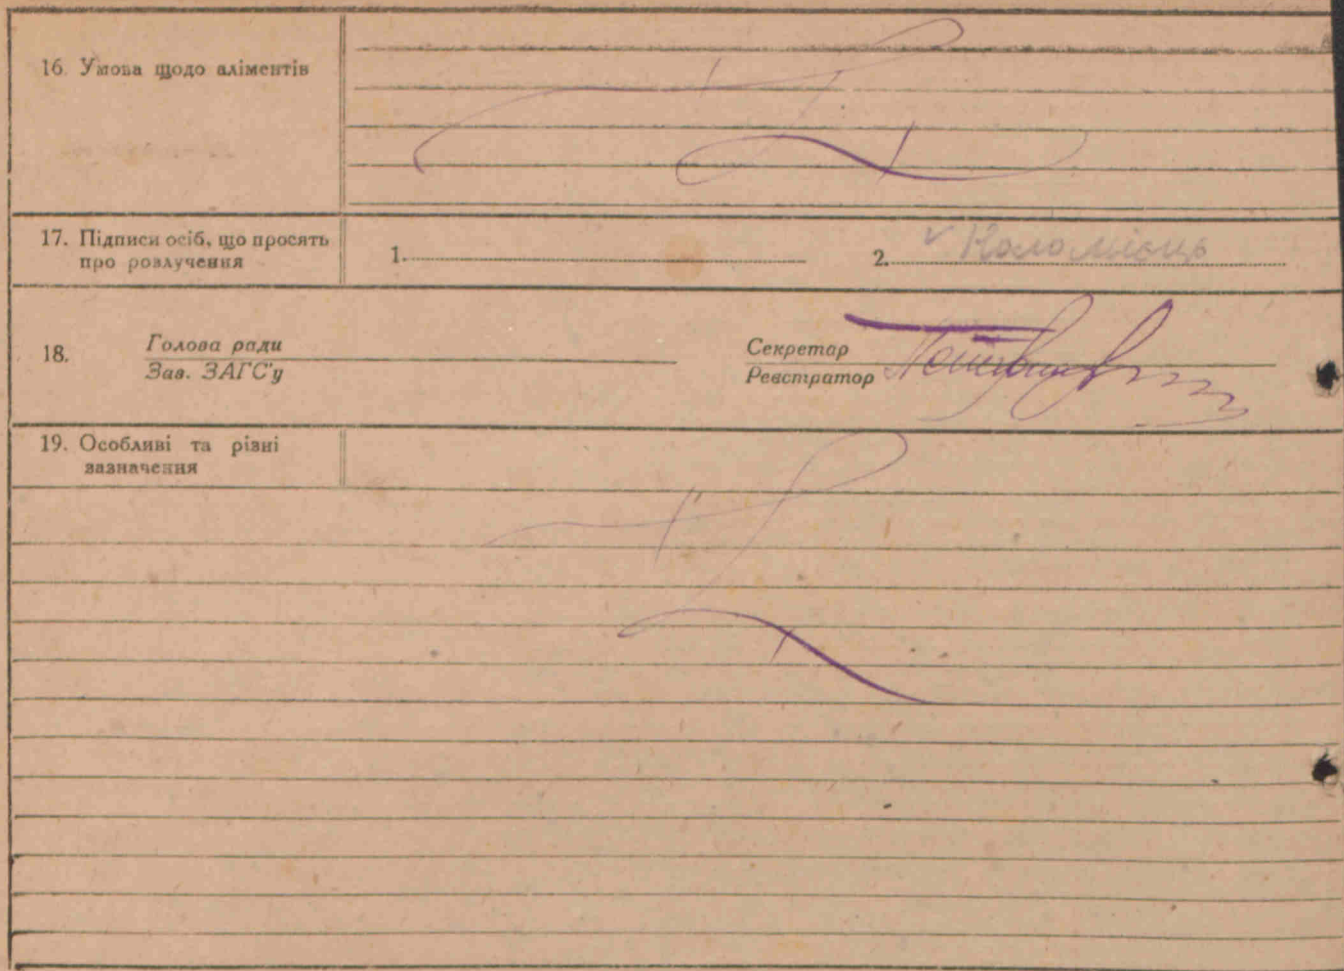 16. Умова щодо аліментів
17. Підписи осіб, що просять
про розлучення
1. 2. Коломієць
18. Голова ради
Зав. ЗАГС'у
Секретар
Реєстратор
19. Особливі та різні
зазначення